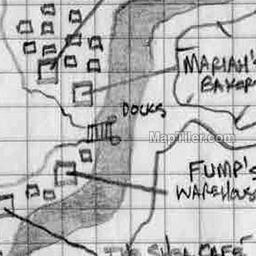 MARIAH'S
BAKER
DOCKS
MapTiler.com
FUMP'S
WAREHOUS
THE SHEA CAFE